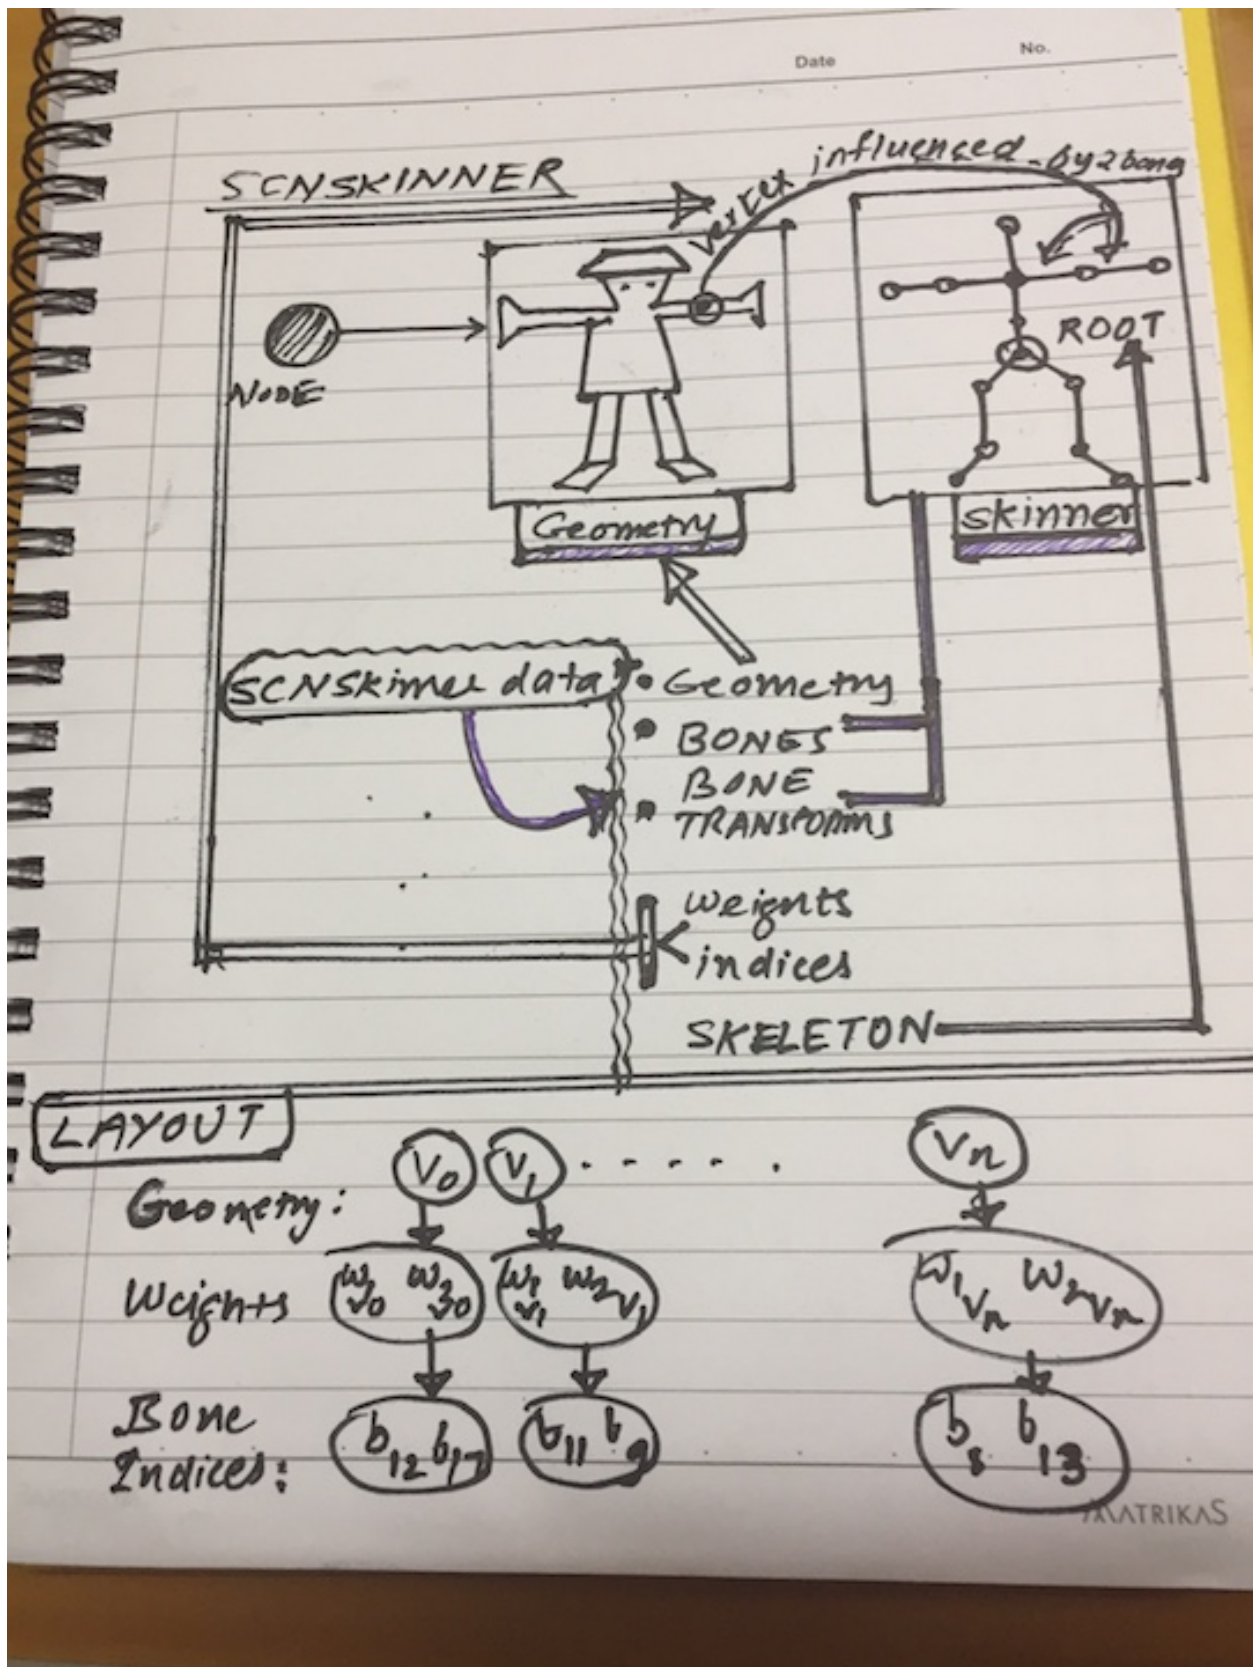 Date No.
SCNSKINNER
vertex influenced by 2 bong
NODE
ROOT
Geometry
skinner
SCNSkinner data
• Geometry
• BONES
• BONE
TRANSFORMS
weights
indices
SKELETON
LAYOUT
Geometry: V0 V1 . . . . . Vn
Weights W1V0 W2V0 W1V1 W2V1 W1Vn W2Vn
Bone
Indices: b12 b17 b11 b9 b8 b13
MATRIKAS